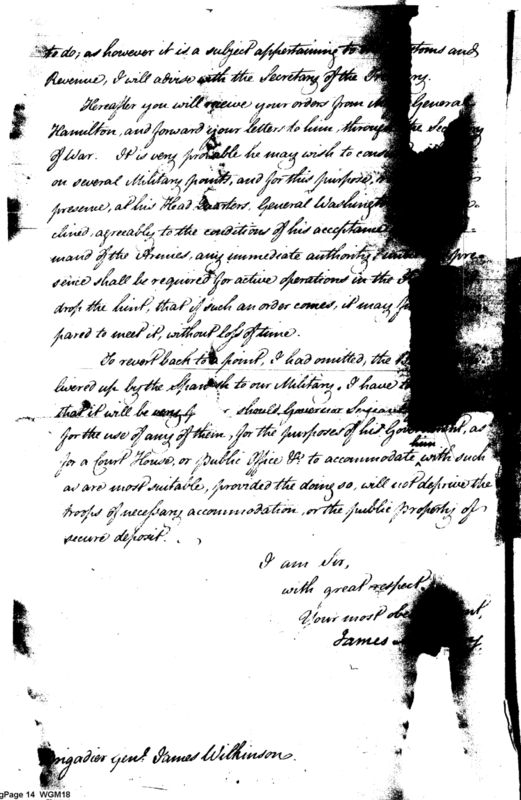 to do; as however it is a subject appertaining to customs and
Revenue, I will advise with the Secretary of the Treasury.
Hereafter you will receive your orders from General
Hamilton, and forward your letters to him, through the Secretary
of War. It is very probable he may wish to consult
on several Military points, and for this purpose,
presence, at his Head Quarters. General Washington
clined, agreeably to the conditions of his acceptance
mand of the Armies, any immediate authority pre-
sence shall be required for active operations in the
drop the hint, that if such an order comes, it may
pared to meet it, without loss of time.
To revert back to a point, I had omitted, the
livered up by the Spanish to our Military. I have
that it will be should Governor
for the use of any of them, for the purposes of his Government, as
for a Court House, or Public Office &c. to accommodate him with such
as are most suitable, provided the doing so, will not deprive the
troops of necessary accommodation, or the public Property of
secure deposit.
I am Sir,
with great respect,
Your most
James
Genl. James Wilkinson.
gPage 14 WGM18